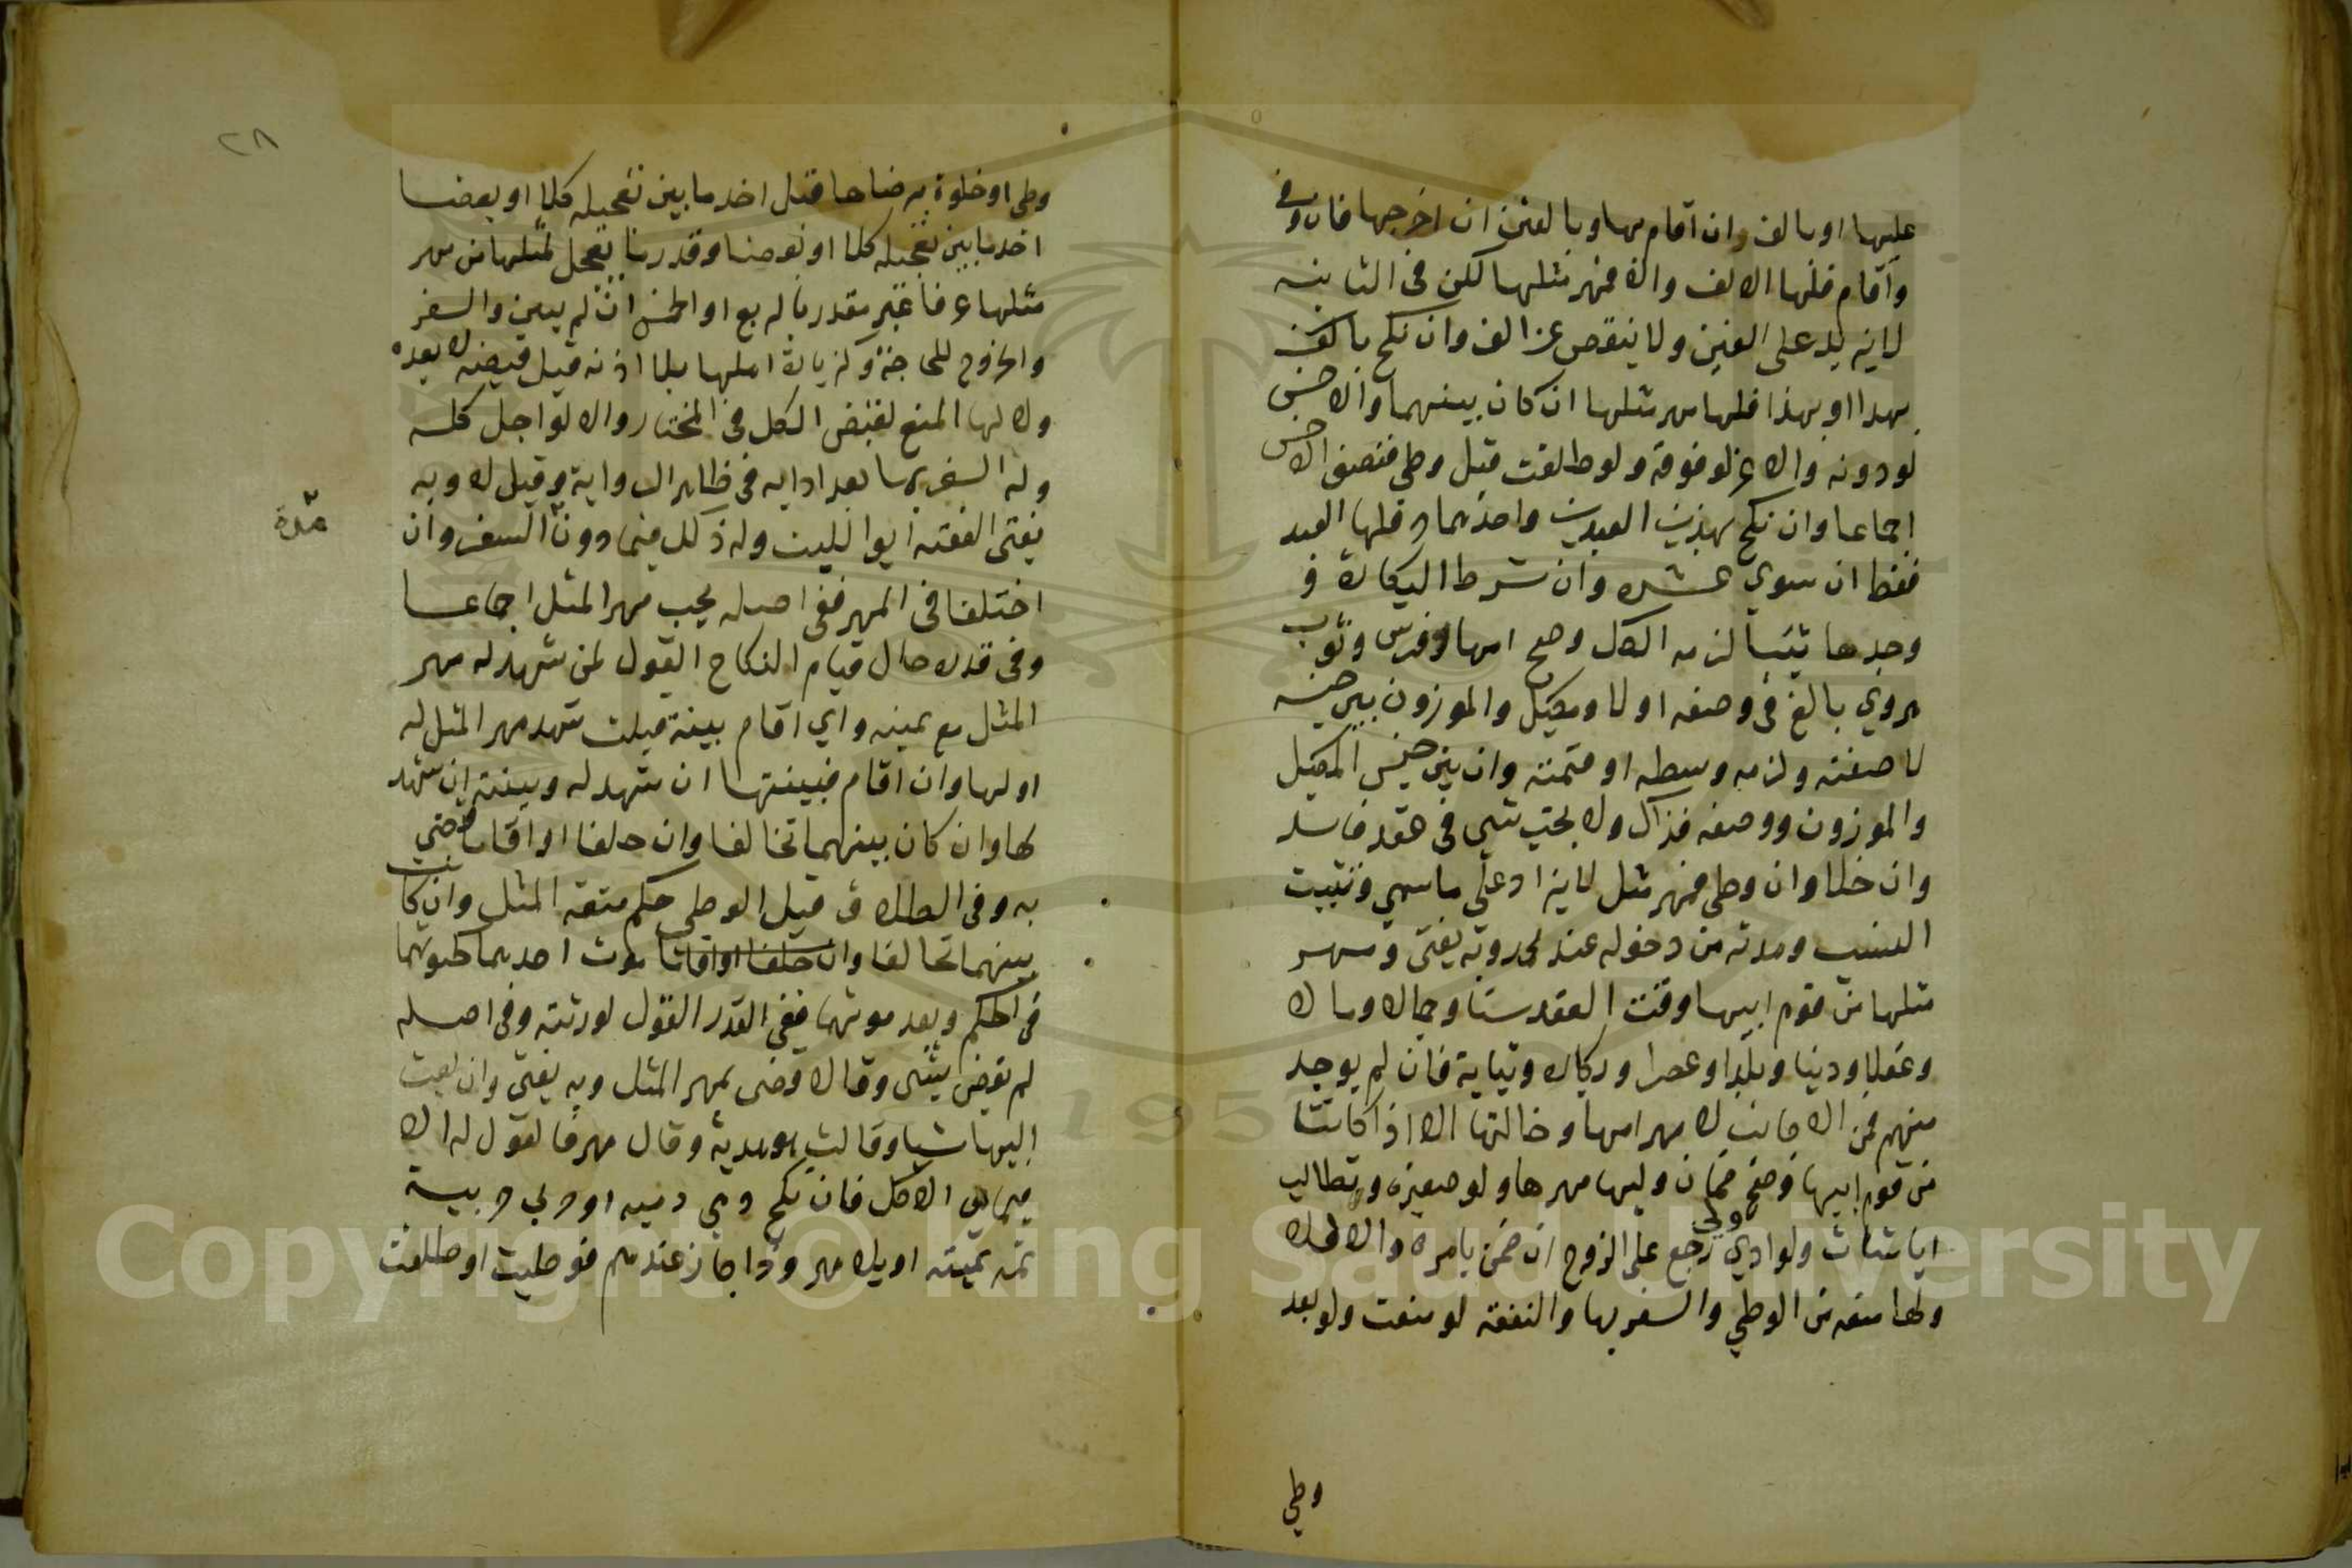 عليها او بالف وان اقام بها وبالفين ان اخرجها فان وفى
واقام فلها الالف والا فمهر مثلها لكن فى الثانية
لا يزيد على الفين ولا ينقص عن الف وان نكح بالف
بهذا او بهذا فلها مهر مثلها ان كان بينهما والاخس
لو دونه والاعز لو فوقه ولو طلقت قبل وطي فنصف الاخس
اجماعا وان نكح بهذين العبدين واحدهما حر فلها العبد
فقط ان سوي عشرة وان شرط البكارة و
وجدها ثيبا لزمه الكل وصح امهار فرس وثوب
هروي بالغ فى وصفه او لا ومكيل والموزون بين جنسه
لا صفته ولزمه وسطه او قيمته وان بين جنس المكيل
والموزون ووصفه فذاك ولا يجب شي فى عقد فاسد
وان خلا وان وطي فمهر مثل لا يزاد على ما سمي ويثبت
النسب ومدته من دخوله عند محمد وبه يفتى ومهر
مثلها من قوم ابيها وقت العقد سنا وجمالا ومالا
وعقلا ودينا وبلدا وعصرا وبكارة وثيابة فان لم يوجد
منهم فمن الاجانب لا مهر امها وخالتها الا اذا كانتا
من قوم ابيها وصح ضمان وليها مهرها ولو صغيرة وتطالب
ايا شات ولو ادي ولي رجع على الزوج ان ضمن بامره والا فلا
ولها منعه من الوطي والسفر بها والنفقة لو منعت ولو بعد
وطي
٢٨
وطي او خلوة برضاها قبل اخذ ما بين تعجيله كلا او بعضا
اخذ ما بين تعجيله كلا او بعضا وقدر ما يعجل لمثلها من مهر
مثلها عرفا غير مقدر بالربع او الخمس ان لم يبين والسفر
والخروج للحاجة وزيارة اهلها بلا اذنه قبل قبضه لا بعده
ولا لها المنع لقبض الكل فى المختار والا لو اجل كله
وله السفر بها بعد ادايه فى ظاهر الرواية وقيل لا وبه
يفتى الفقيه ابو الليث وله ذلك فيما دون السفر وان
مدة
اختلفا فى المهر ففى اصله يجب مهر المثل اجماعا
وفى قدره حال قيام النكاح القول لمن شهد له مهر
المثل مع يمينه واي اقام بينة قبلت شهد مهر المثل له
او لها وان اقام فبينتها ان شهد له وبينته ان شهد
لها وان كان بينهما تخالفا وان حلفا او اقاما قضي
به وفى الطلاق قبل الوطي حكم متعة المثل وان كانت
بينهما تحالفا وان حلفا او اقاما موت احدهما كحيوتهما
فى الحكم وبعد موتهما ففى القدر القول لورثته وفى اصله
لم يقض بشى وقالا قضى بمهر المثل وبه يفتى وان بعث
اليها شيا وقالت هو هدية وقال مهر فالقول له الا
فى هيئ للاكل فان نكح ذمي ذمية او حربي حربية
ثمه بميتة او بلا مهر وذا جاز عندهم فوطيت او طلقت